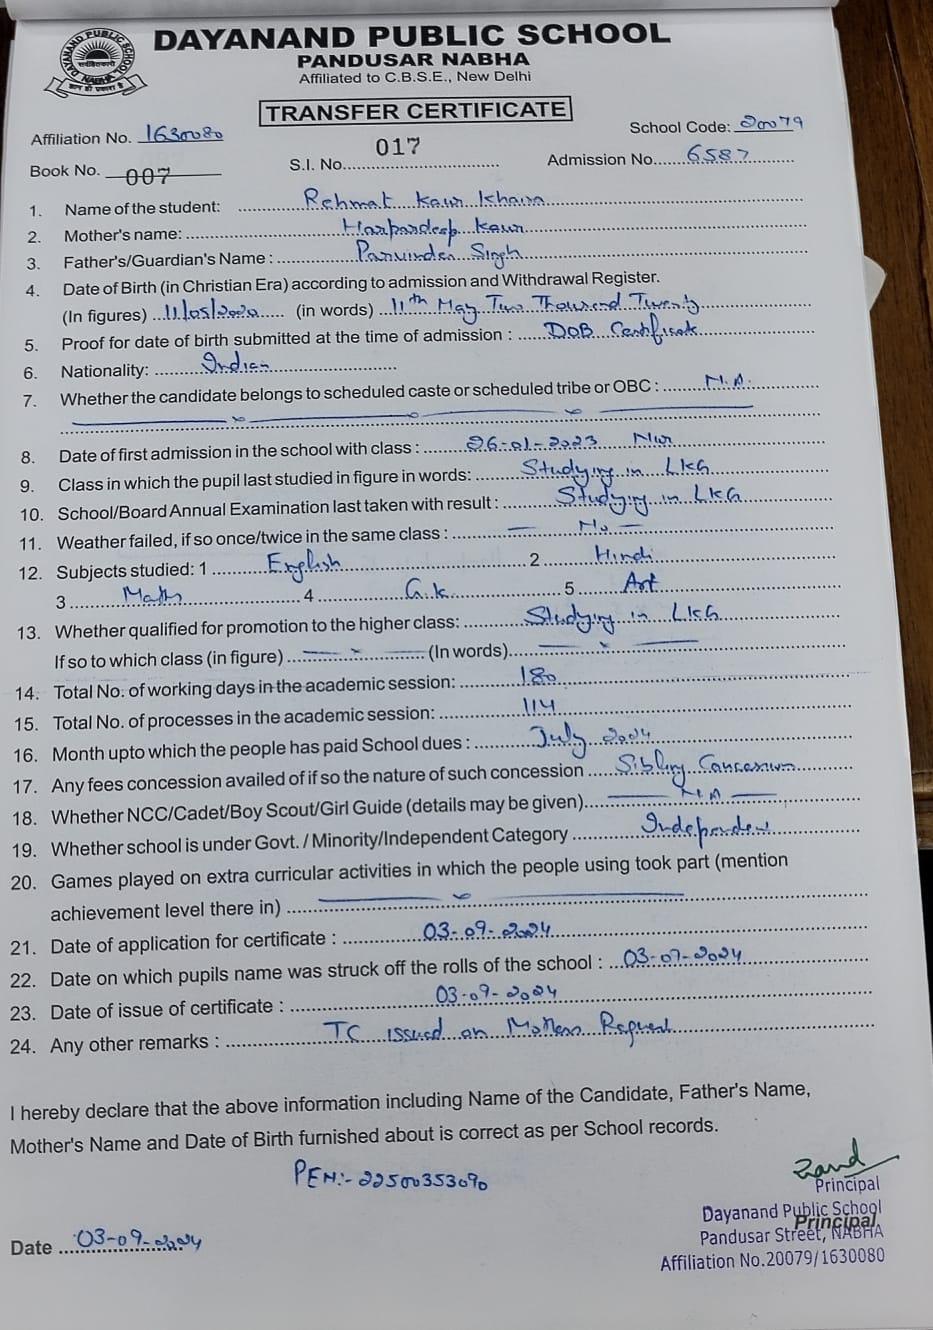 DAYANAND PUBLIC SCHOOL
PANDUSAR NABHA
Affiliated to C.B.S.E., New Delhi
TRANSFER CERTIFICATE
Affiliation No. 1630080 School Code: 20079
Book No. 007 S.I. No. 017 Admission No. 6587
1. Name of the student: Rehmat Kaur Khaira
2. Mother's name: Harpardeep Kaur
3. Father's/Guardian's Name : Parvinder Singh
4. Date of Birth (in Christian Era) according to admission and Withdrawal Register.
(In figures) 11/05/2020 (in words) 11th May Two Thousand Twenty
5. Proof for date of birth submitted at the time of admission : DOB Certificate
6. Nationality: Indian
7. Whether the candidate belongs to scheduled caste or scheduled tribe or OBC : N.A.
8. Date of first admission in the school with class : 26-01-2023 Nur
9. Class in which the pupil last studied in figure in words: Studying in LKG
10. School/Board Annual Examination last taken with result : Studying in LKG
11. Weather failed, if so once/twice in the same class : — No —
12. Subjects studied: 1 English 2 Hindi
3 Math 4 G.K. 5 Art
13. Whether qualified for promotion to the higher class: Studying in LKG
If so to which class (in figure) (In words)
14. Total No. of working days in the academic session: 180
15. Total No. of processes in the academic session: 114
16. Month upto which the people has paid School dues : July 2024
17. Any fees concession availed of if so the nature of such concession Sibling Concession
18. Whether NCC/Cadet/Boy Scout/Girl Guide (details may be given) — N.A —
19. Whether school is under Govt. / Minority/Independent Category Independent
20. Games played on extra curricular activities in which the people using took part (mention
achievement level there in)
21. Date of application for certificate : 03-09-2024
22. Date on which pupils name was struck off the rolls of the school : 03-09-2024
23. Date of issue of certificate : 03-09-2024
24. Any other remarks : TC issued on Mothers Request
I hereby declare that the above information including Name of the Candidate, Father's Name,
Mother's Name and Date of Birth furnished about is correct as per School records.
PEN:- 22500353090
Principal
Dayanand Public School
Principal
Pandusar Street, NABHA
Date 03-09-2024
Affiliation No.20079/1630080